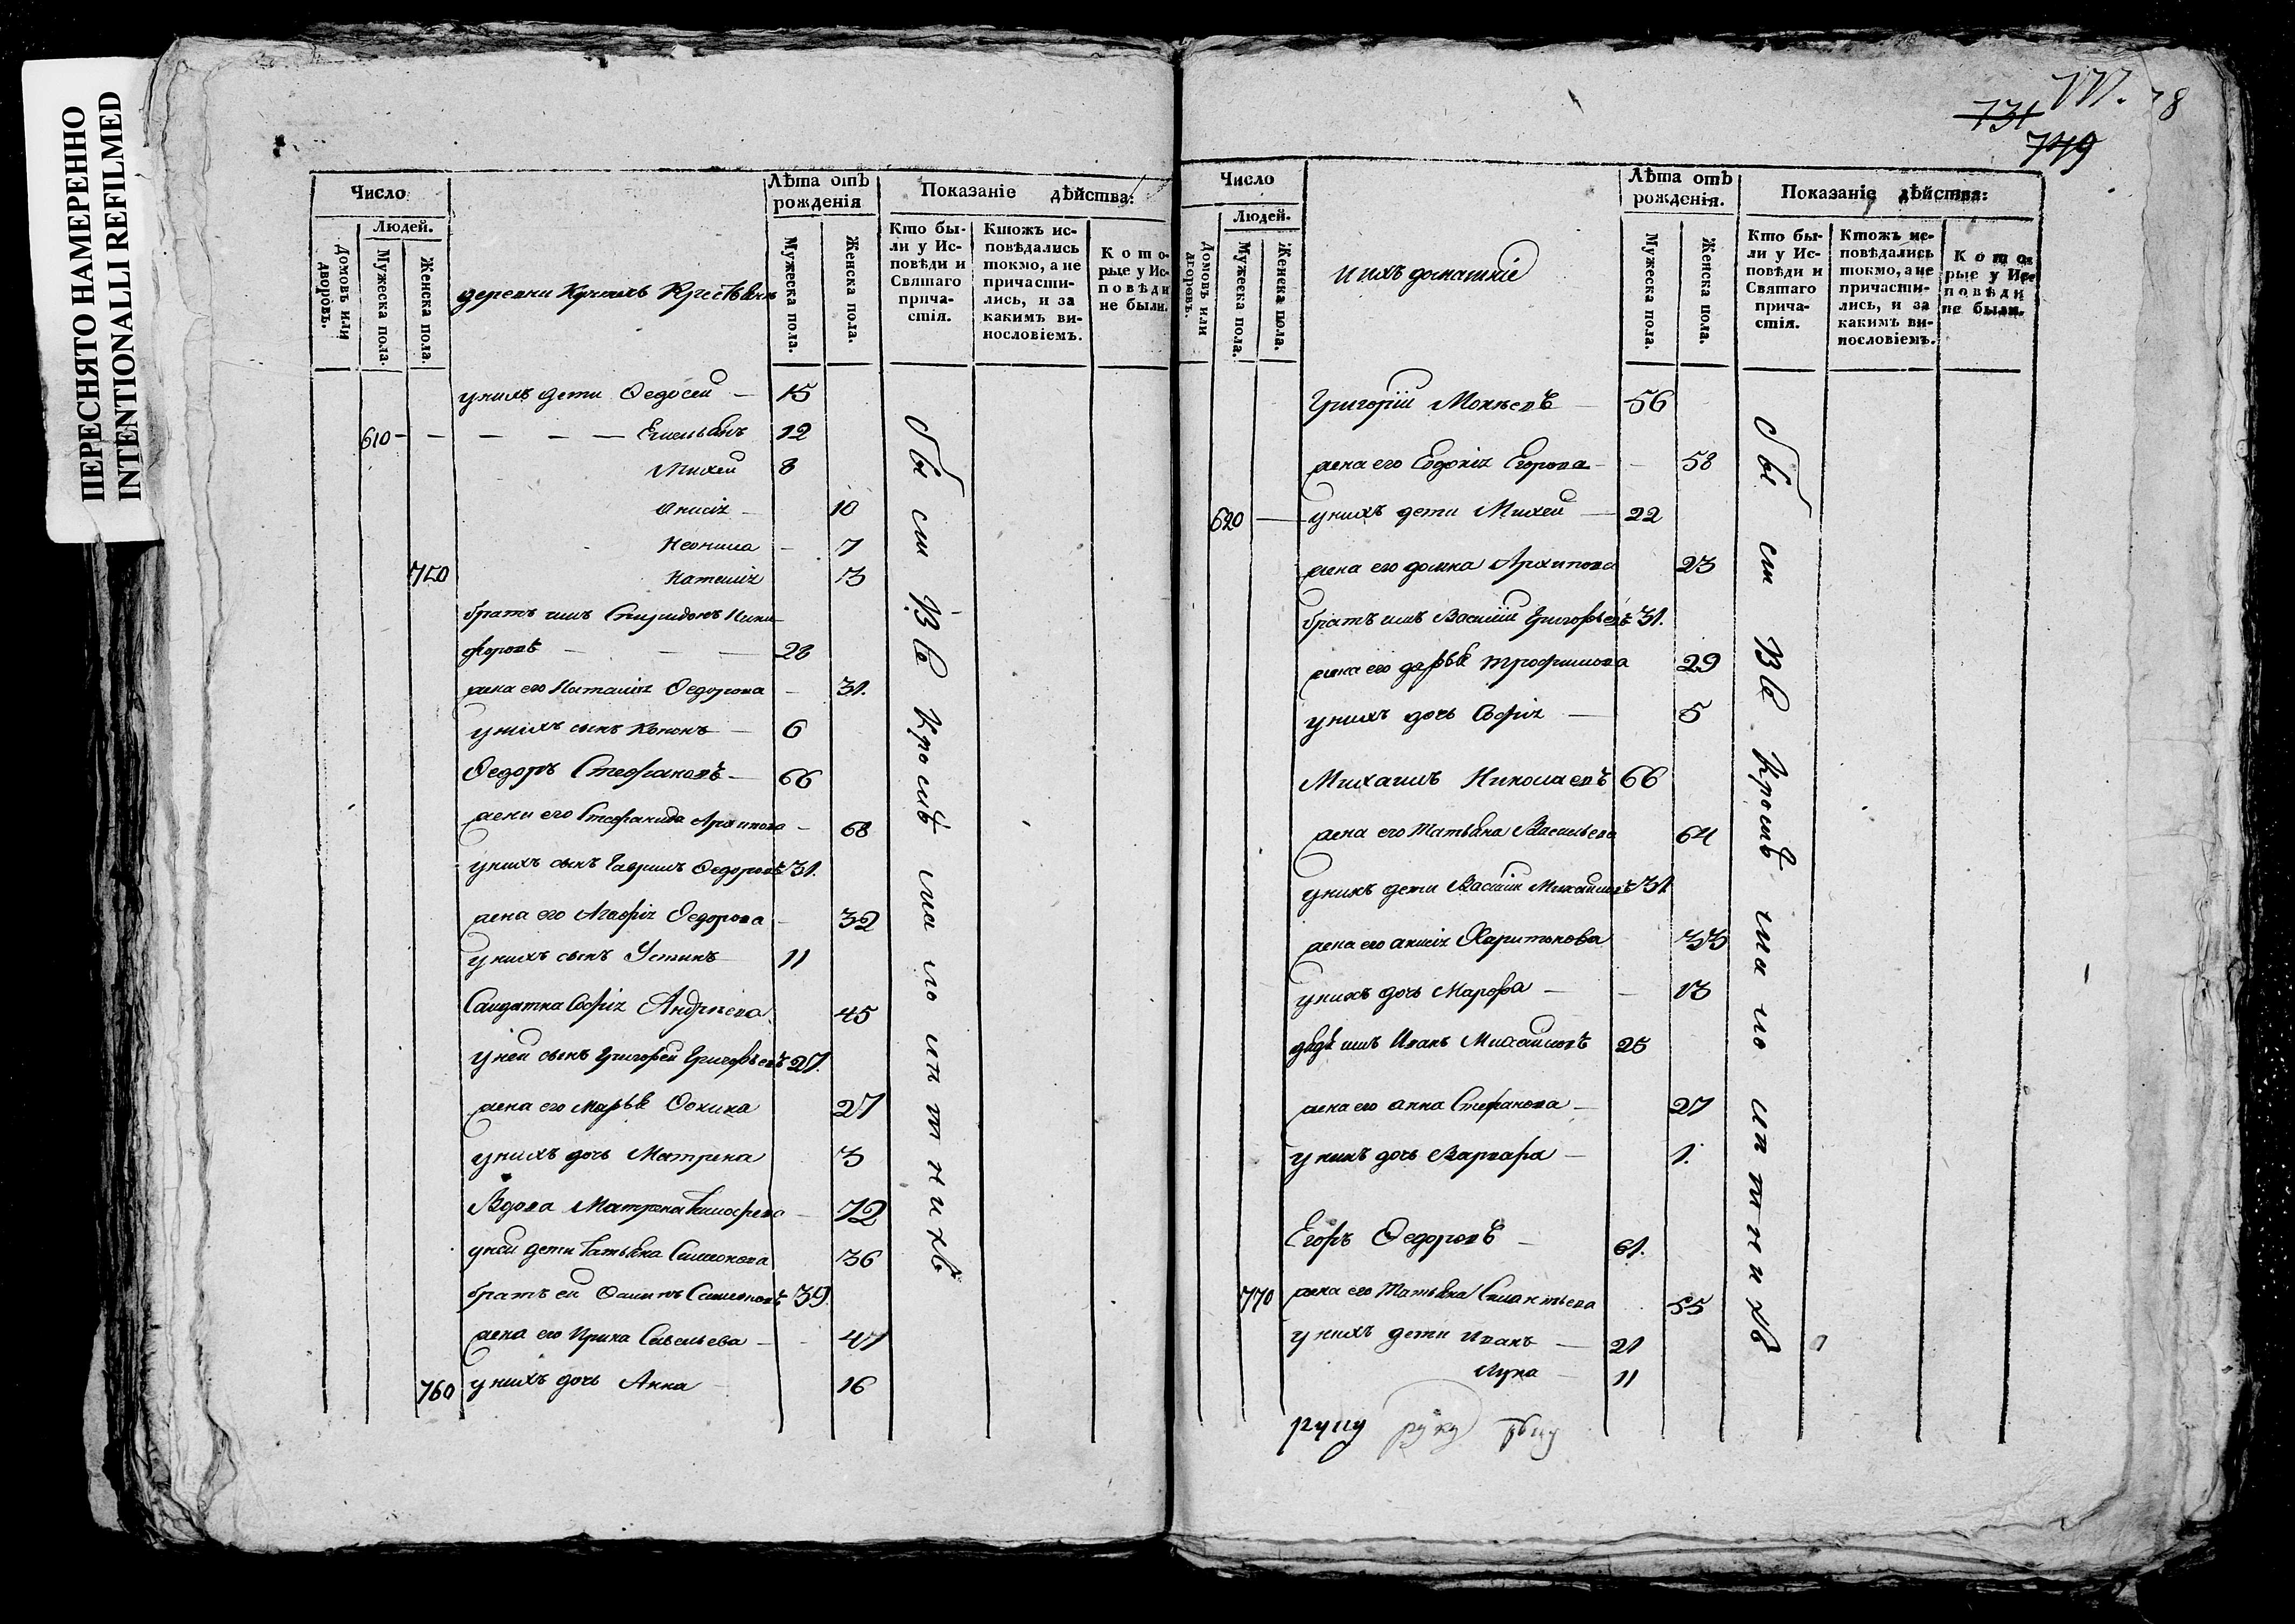 ПЕРЕСНЯТО НАМЕРЕННО
INTENTIONALLI REFILMED
Число
Людей.
Домовъ или дворовъ.
Мужеска пола.
Женска пола.
деревни Крестьянъ
Лѣта отъ рожденія
Мужеска пола.
Женска пола.
Показаніе дѣйства:
Кто бы-
ли у Ис-
повѣди и
Святаго
прича-
стія.
Ктожъ ис-
повѣдались
токмо, а не
причасти-
лись, и за
какимъ ви-
нословіемъ.
Кото-
рые у Ис-
повѣди
не были.
у нихъ дети Федосей — 15
610 — — — — — Емельянъ 12
Михей 8
Анисія — 10
Неонила — 7
750 Наталия 3
братъ ихъ Спиридонъ Ники-
форовъ — — — 28
жена его Наталия Федорова — 31.
у нихъ сынъ Кононъ — 6
Федоръ Стефановъ — 66
жена его Стефанида Архипова — 68
у нихъ сынъ Гаврилъ Федоровъ 31.
жена его Агафия Федорова — 32
у нихъ сынъ Устинъ 11
Салдатка София Андреева 45
у ней сынъ Григорей Григорьевъ 21.
жена его Марья Фокина 27
у нихъ дочь Матрена 3
Вдова Матрена Тимофеева — 72
у ней дети Татьяна Симионова 36
братъ ей Осипъ Симионовъ 39.
жена его Ирина Савельева — 47
760 у нихъ дочь Анна 16
бы ли Всѣ Кромѣ ма ло лѣтнихъ
777. 78
731
749
Число
Людей.
Домовъ или дворовъ.
Мужеска пола.
Женска пола.
и ихъ домашніе
Лѣта отъ рожденія.
Мужеска пола.
Женска пола.
Показаніе дѣйства:
Кто бы-
ли у Ис-
повѣди и
Святаго
прича-
стія.
Ктожъ ис-
повѣдались
токмо, а не
причасти-
лись, и за
какимъ ви-
нословіемъ.
Кото-
рые у Ис-
повѣди
не были.
Григорій — 56
жена его Евдокия Егорова — 58
620 — у нихъ дети Михей — 22
жена его домна Архипова 23
братъ ихъ Василий Григорьевъ 31.
жена его дарья Трофимова 29
у нихъ дочь София — 5
Михаилъ Николаевъ 66
жена его Татьяна Васильева 64
у нихъ дети Василий Михайловъ 31
жена его Харитонова 33
у нихъ дочь Марфа — — 13
дядя ихъ Иванъ Михайловъ 25
жена его анна Стефанова — 27
у нихъ дочь Варвара — 1.
Егоръ Федоровъ — 61.
770 жена его Татьяна 55
у нихъ дети иванъ — 21
Лука — 11
бы ли Всѣ Кромѣ ма ло лѣтнихъ
руку руку